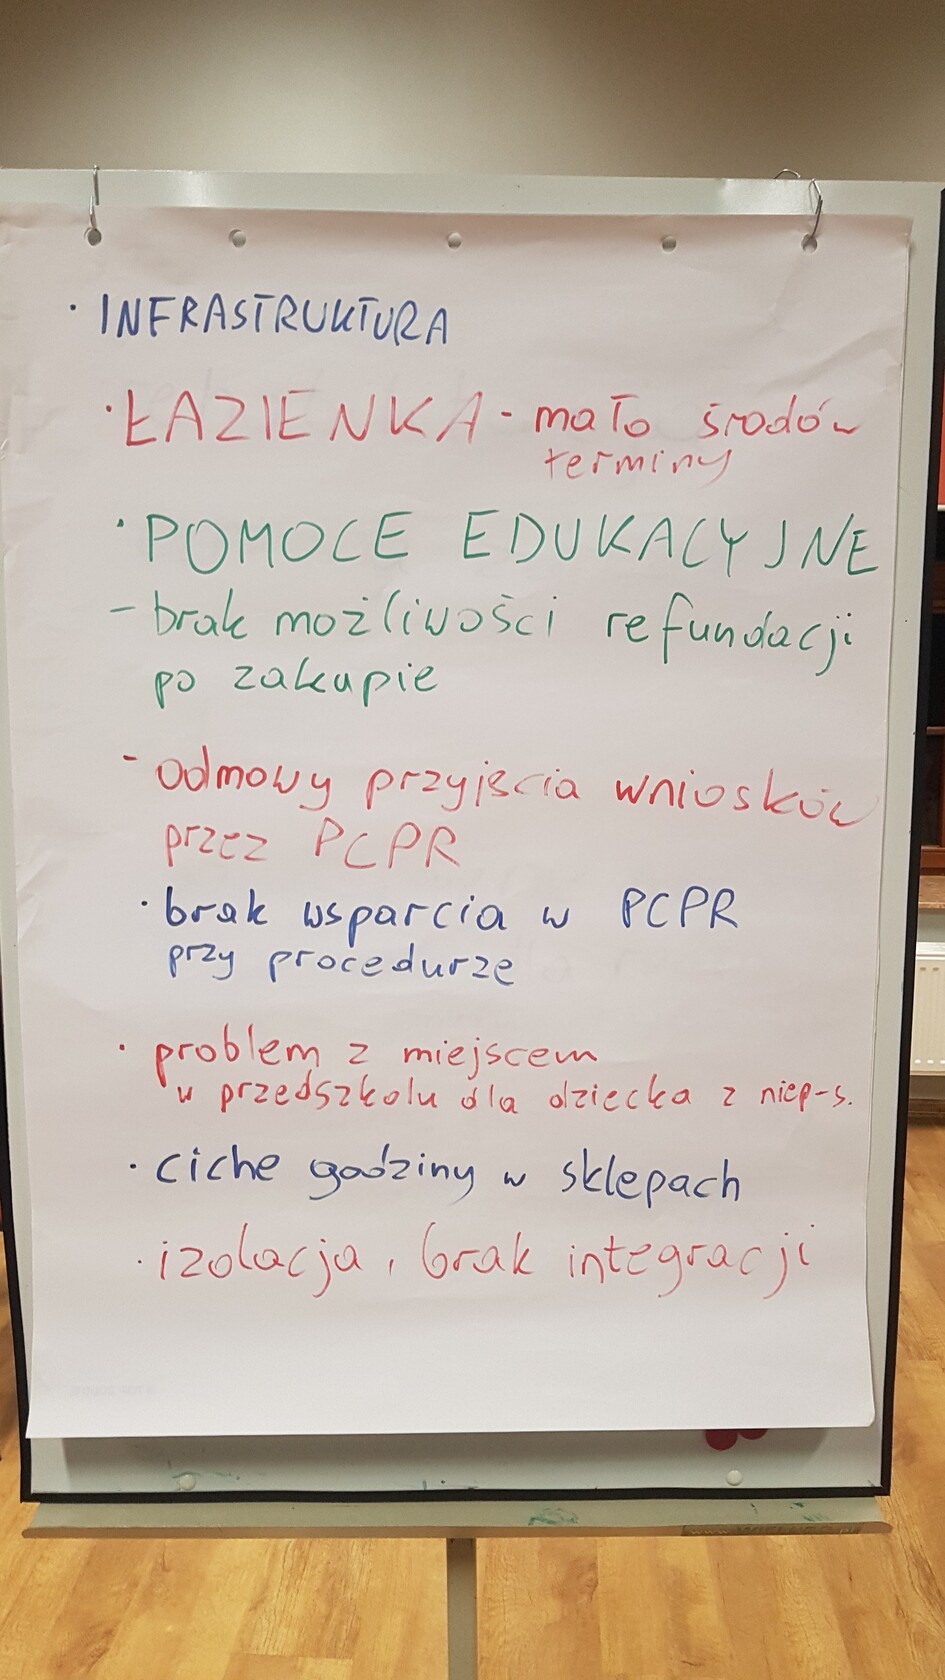 · INFRASTRUKTURA
· ŁAZIENKA - mało środów
terminy
· POMOCE EDUKACYJNE
- brak możliwości refundacji
po zakupie
- odmowy przyjścia wniosków
przez PCPR
· brak wsparcia w PCPR
przy procedurze
· problem z miejscem
w przedszkolu dla dziecka z niep-s.
· ciche godziny w sklepach
· izolacja, brak integracji